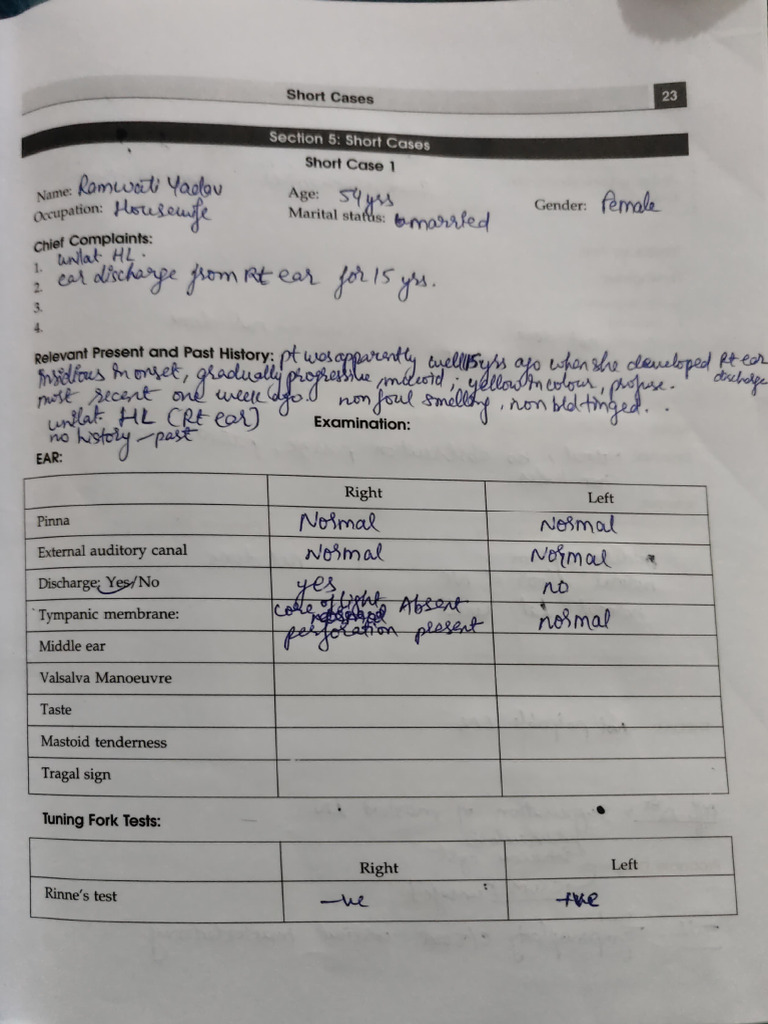 Short Cases 23
Section 5: Short Cases
Short Case 1
Name: Ramwati Yadav Age: 54 yrs Gender: Female
Occupation: Housewife Marital status: married
Chief Complaints:
1. unilat HL.
2. ear discharge from Rt ear for 15 yrs.
3.
4.
Relevant Present and Past History: pt was apparently well 15 yrs ago when she developed Rt ear discharge
insidious in onset, gradually progressive, mucoid, yellow in colour, profuse.
most recent one week ago. non foul smelling, non bld tinged.
unilat. HL (Rt ear)
no history - past
Examination:
EAR:
Right Left
Pinna Normal Normal
External auditory canal Normal Normal
Discharge: Yes/No yes no
Tympanic membrane: cone of light Absent normal
perforation present
Middle ear
Valsalva Manoeuvre
Taste
Mastoid tenderness
Tragal sign
Tuning Fork Tests:
Right Left
Rinne's test -ve +ve